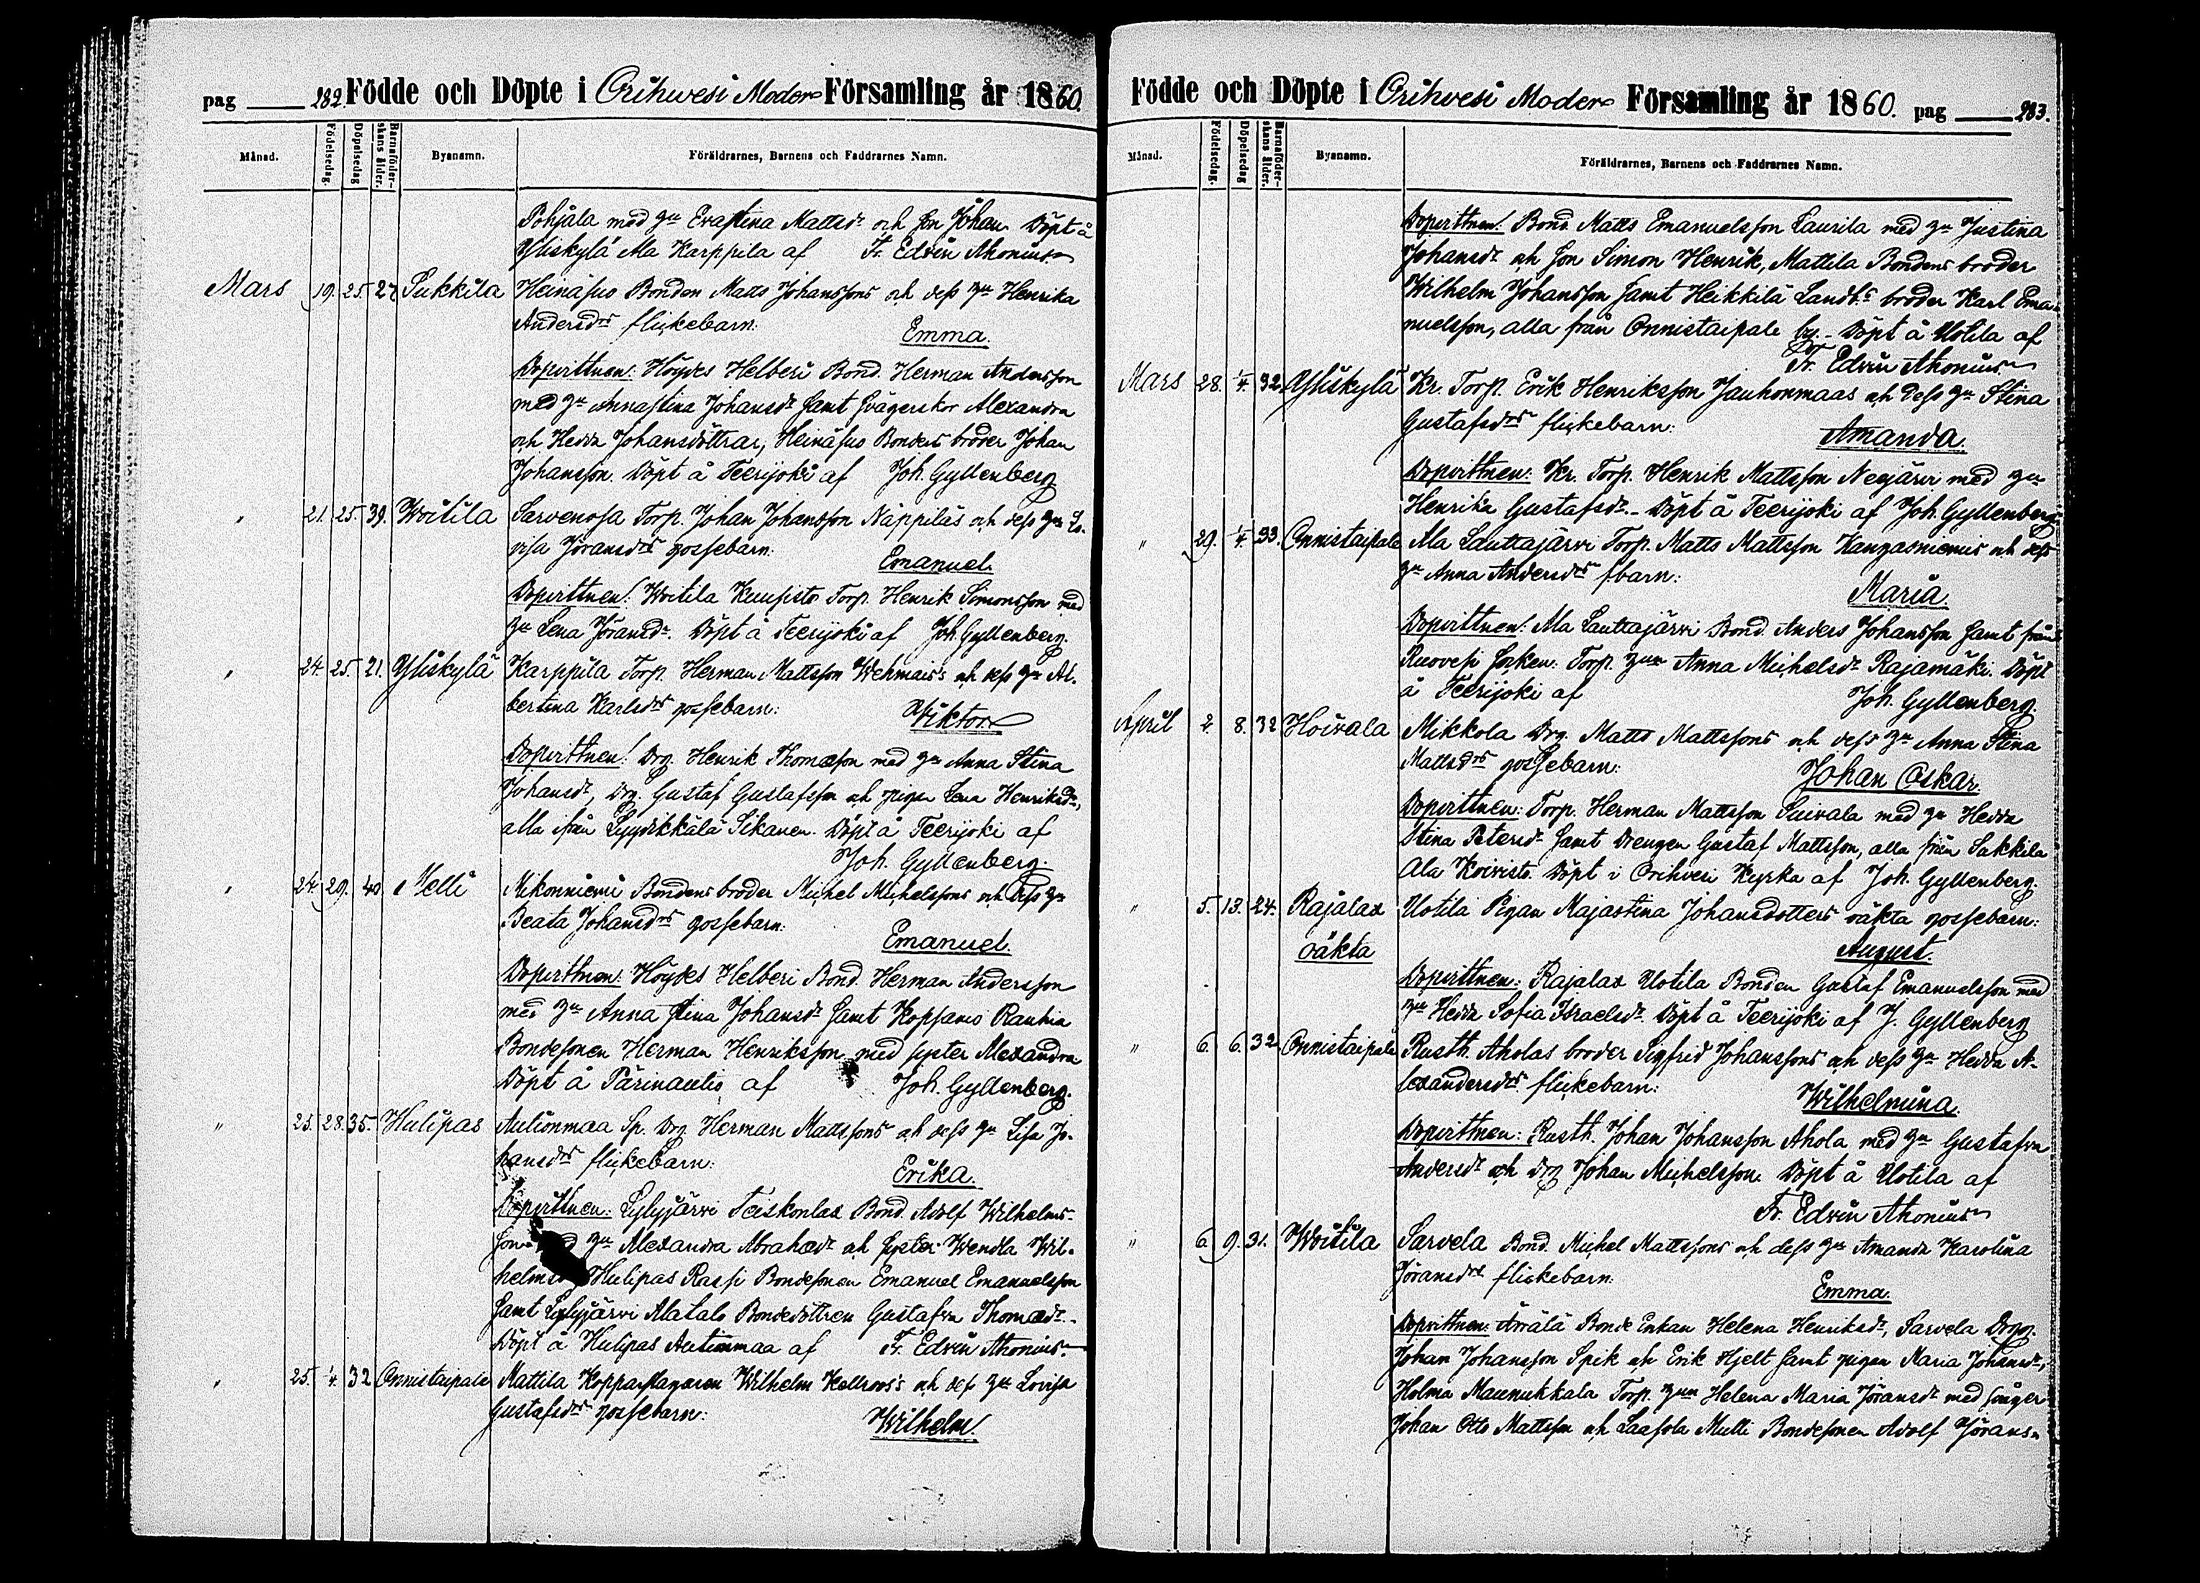 pag 282. Födde och Döpte i Orihwesi Moder Församling år 1860.
Månad. Födelsedag. Döpelsedag Barnaföderskans ålder. Bysnamn. Föräldrarnes, Barnens och Faddrarnes Namn.
Pohjala med hu Evastina Mattsdr och son Johan. Döpt å
Yliskylä Ala Karppila af Fr. Edvin Ahonius
Mars 19. 25. 27 Sukkila Heinäsuo Bonden Matts Johanssons och dess hu Henrika
Andersdrs flickebarn: Emma.
Dopvittnen: Höydes Helberi Bond. Herman Andersson
med hu Annastina Johansdr samt svägerskor Alexandra
och Hedda Johansdöttrar, Heinäsuo Bondens broder Johan
Johansson. Döpt å Teerijoki af Joh. Gyllenberg
" 21. 25. 39. Woitila Sarvenoja Torp. Johan Johansson Näppiläs och dess hu Lo-
visa Jöransdrs gossebarn: Emanuel.
Dopvittnen: Woitila Kuusisto Torp. Henrik Simonsson med
hu Lena Jöransdr. Döpt å Teerijoki af Joh. Gyllenberg.
" 24. 25. 21. Yliskylä Karppila Torp. Herman Mattsson Wehmais's och dess hu Al-
bertina Karlsdrs gossebarn: Viktor
Dopvittnen: Drg. Henrik Thomasson med hu Anna Stina
Johansdr, Drg. Gustaf Gustafsson och pigan Lena Henriksdr,
alla ifrån Lyydikkälä Sikanen. Döpt å Teerijoki af
Joh. Gyllenberg.
" 24. 29. 40. Selli Nikonniemi Bondens broder Michel Michelssons och dess hu
Beata Johansdrs gossebarn: Emanuel.
Dopvittnen: Höydes Helberi Bond. Herman Andersson
med hu Anna Stina Johansdr samt Kopsamo Rauhia
Bondesonen Herman Henriksson med syster Alexandra
Döpt å Pärinautio af Joh. Gyllenberg.
" 25. 28. 35. Hulipas Autionmaa Sp. Drg Herman Mattssons och dess hu Lisa Jo-
hansdrs flickebarn: Erika.
Dopvittnen: Lylyjärvi Teiskonlax Bond. Adolf Wilhelms-
son med hu Alexandra Abrahadr och syster Wendla Wil-
helmsdr Hulipas Rassi Bondesonen Emanuel Emanuelsson
samt Lylyjärvi Alatalo Bondedottren Gustafva Thomædr.
Döpt å Hulipas Autionmaa af Fr. Edvin Ahonius.
" 25. 1/4 32 Onnistaipale Mattila Kopparslagaren Wilhelm Hellroos's och dess hu Lovisa
Gustafsdrs gossebarn: Wilhelm.
Födde och Döpte i Orihvesi Moder Församling år 1860. pag 283.
Månad. Födelsedag. Döpelsedag Barnaföderskans ålder. Bysnamn. Föräldrarnes, Barnens och Faddrarnes Namn.
Dopvittnen: Bond. Matts Emanuelsson Laurila med hu Justina
Johansdr och son Simon Henrik, Mattila Bondens broder
Wilhelm Johansson samt Heikkilä Landb:s broder Karl Ema-
nuelsson, alla från Onnistaipale by. Döpt å Uotila af
Fr. Edvin Ahonius
Mars 28. 1/4. 32. Yliskylä Kr. Torp. Erik Henriksson Jauhonmaas och dess hu Stina
Gustafsdrs flickebarn: Amanda.
Dopvittnen: Kr. Torp. Henrik Mattsson Neejärvi med hu
Henrika Gustafsdr. Döpt å Teerijoki af Joh. Gyllenberg.
" 29. 1/4. 33. Onnistaipale Ala Lauttajärvi Torp. Matts Mattsson Kangasniemis och dess
hu Anna Andersdrs fbarn: Maria.
Dopvittnen: Ala Lauttajärvi Bond. Anders Johansson samt från
Ruovesi Socken: Torp. hun Anna Michelsdr Rajamäki. Döpt
å Teerijoki af Joh. Gyllenberg.
April 2. 8. 32 Hoivala Mikkola Drg. Matts Mattssons och dess hu Anna Stina
Mattsdrs gossebarn: Johan Oskar.
Dopvittnen: Torp. Herman Mattsson Suivala med hu Hedda
Stina Petersdr samt Drengen Gustaf Mattsson, alla från Sukkila
Ala Koivisto. Döpt i Orihvesi Kyrka af Joh. Gyllenberg.
" 5. 13. 24. Rajalax Uotila Pigan Majastina Johansdotters oäkta gossebarn:
oäkta August.
Dopvittnen: Rajalax Uotila Bonden Gustaf Emanuelsson med
hu Hedda Sofia Israelsdr. Döpt å Teerijoki af J. Gyllenberg
" 6. 6. 32 Onnistaipale Rusth. Aholas broder Sigfrid Johanssons och dess hu Hedda A-
lexandersdrs flickebarn: Wilhelmina.
Dopvittnen: Rusth. Johan Johansson Ahola med hu Gustafva
Andersdr och Drg Johan Michelsson. Döpt å Uotila af
Fr. Edvin Ahonius
" 6. 9. 31. Woitila Sarvela Bond. Michel Mattssons och dess hu Amanda Karolina
Jöransdrs flickebarn: Emma.
Dopvittnen: Ärrälä Bonde Enkan Helena Henriksdr, Sarvela Drgr.
Johan Johansson Spik och Erik Hjelt samt pigan Maria Johansdr,
Holma Maunukkala Torp. hun Helena Maria Jöransdr med svåger
Johan Otto Mattsson och Laasola Mulli Bondesonen Adolf Jörans-